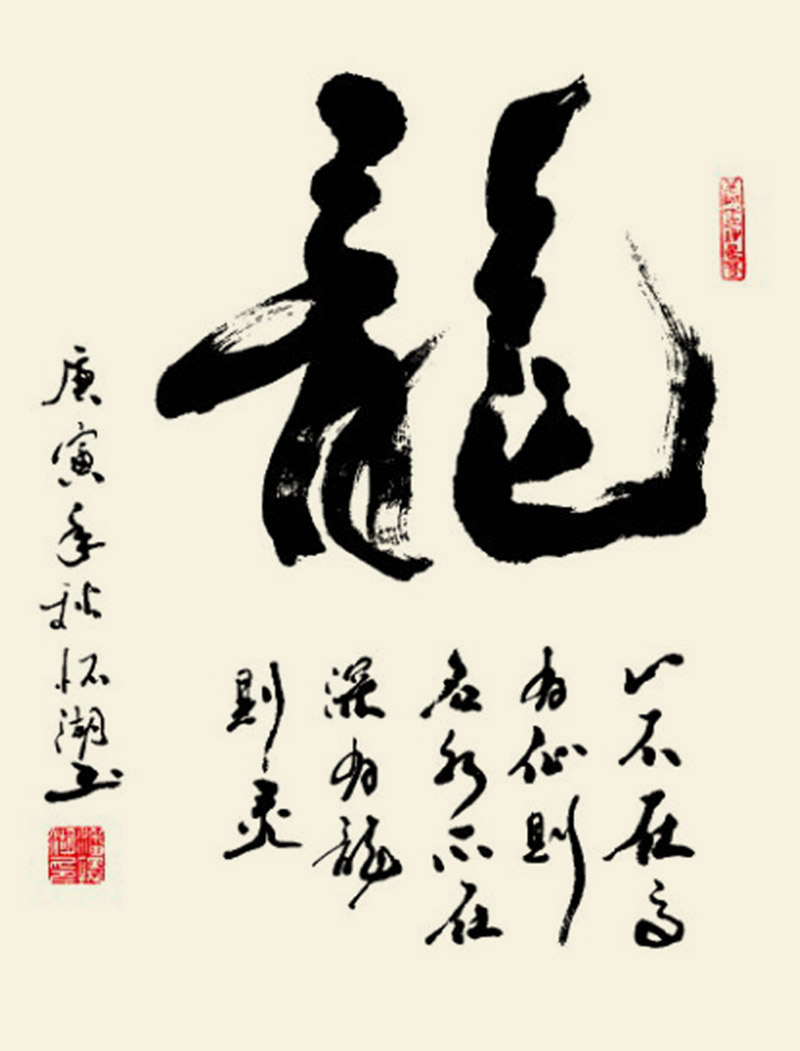 龍
山不在高
有仙則
名水不在
深有龍
則灵
庚寅年秋怀湖书